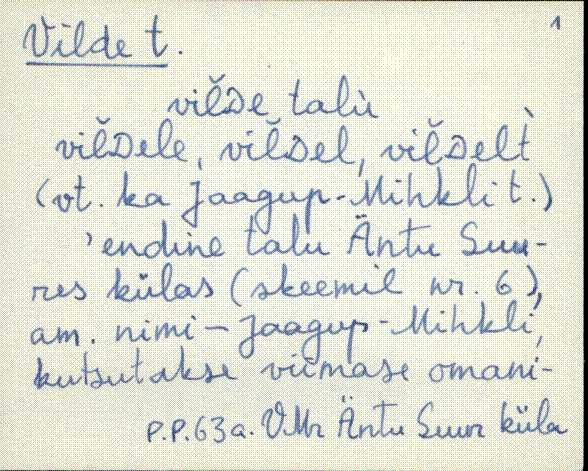 1
Vilde t.
vilˇᴅe talù
vilˇᴅele, vilˇᴅel, vilˇᴅelt̀
(vt. ka Jaagup-Mihkli t.)
'endine talu Äntu Suu-
res külas (skeemil nr. 6),
am. nimi – Jaagup-Mihkli,
kutsutakse viimase omani-
P.P.63a. VMr Äntu Suur küla